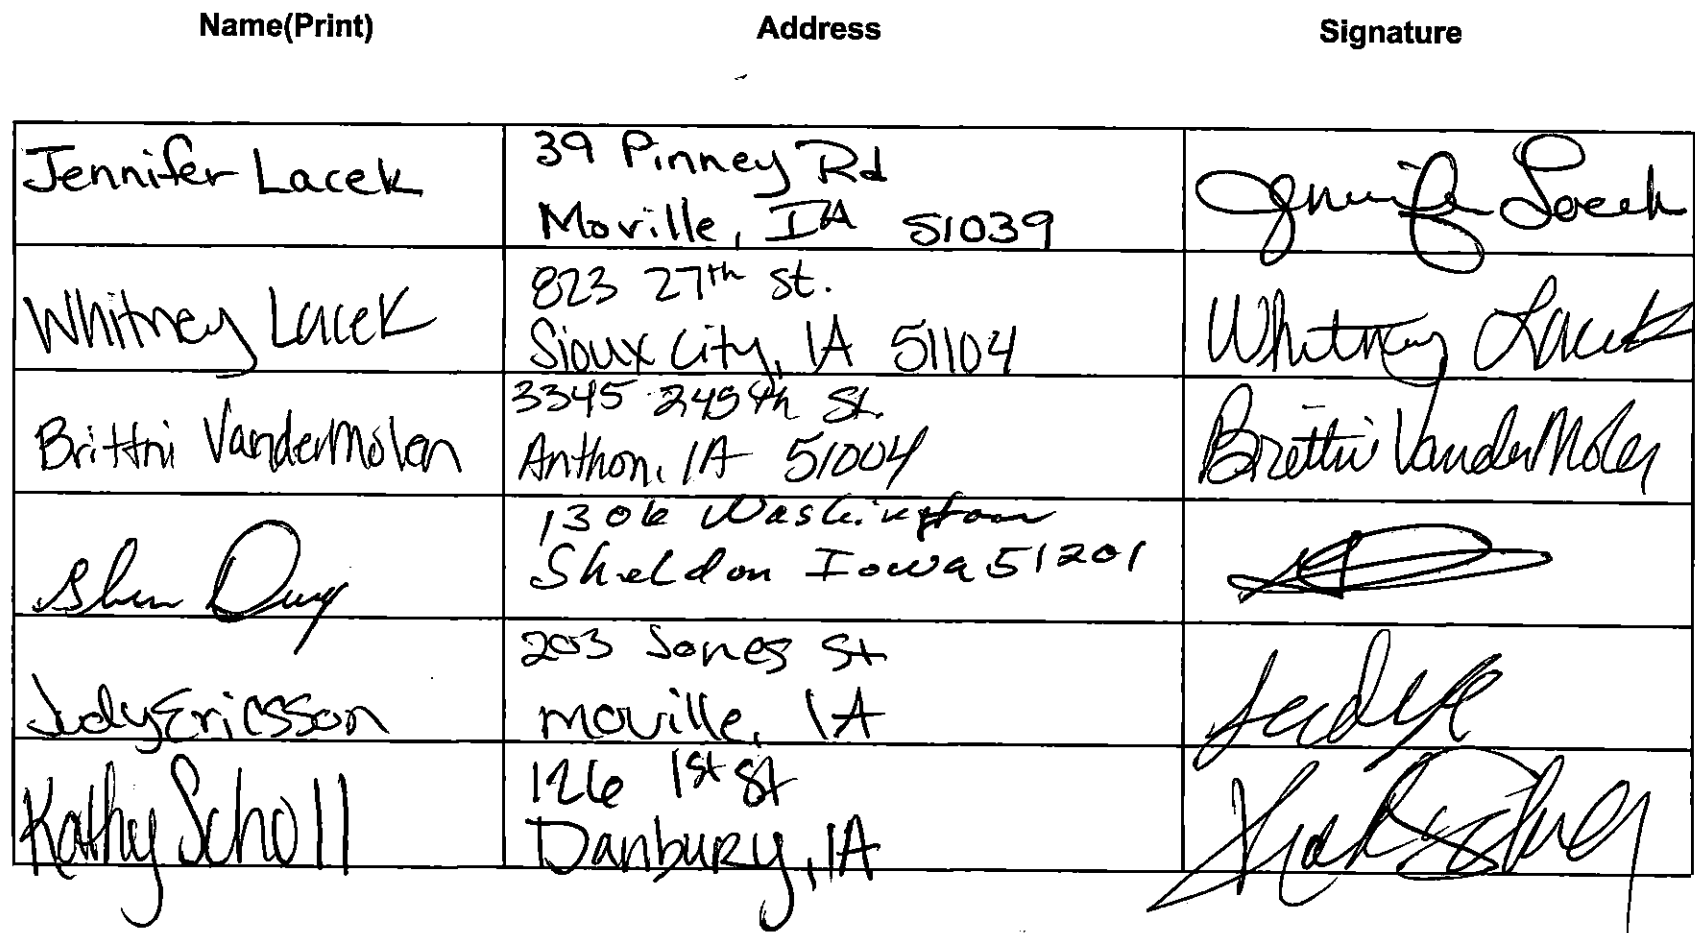 Name(Print) Address Signature
Jennifer Lacek
39 Pinney Rd
Moville, IA 51039
Jennifer Lacek
Whitney Lacek
823 27th St.
Sioux City, IA 51104
Whitney Lacek
Brittni VanderMolen
3345 245th St.
Anthon, IA 51004
Brittni VanderMolen
1306 Washington
Sheldon Iowa 51201
Judy Ericsson
203 Jones St
Moville, IA
Judy E
Kathy Scholl
126 1st St
Danbury, IA